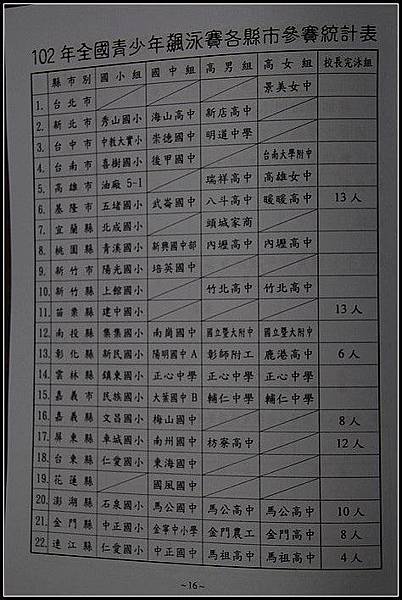 102年全國青少年飆泳賽各縣市參賽統計表
縣市別 國小組 國中組 高男組 高女組 校長完泳組
1. 台北市 景美女中
2. 新北市 秀山國小 海山高中 新店高中
3. 台中市 中教大實小 崇德國中 明道中學
4. 台南市 喜樹國小 後甲國中 台南大學附中
5. 高雄市 油廠 5-1 瑞祥高中 高雄女中
6. 基隆市 五堵國小 武崙國中 八斗高中 暖暖高中 13人
7. 宜蘭縣 北成國小 頭城家商
8. 桃園縣 青溪國小 新興國中部 內壢高中 內壢高中
9. 新竹市 陽光國小 培英國中
10. 新竹縣 上館國小 竹北高中 竹北高中
11. 苗栗縣 建中國小 13人
12. 南投縣 集集國小 南崗國中 國立暨大附中 國立暨大附中
13. 彰化縣 新民國小 陽明國中 A 彰師附工 鹿港高中 6人
14. 雲林縣 鎮東國小 正心中學 正心中學 正心中學
15. 嘉義市 民族國小 大業國中 B 輔仁中學 輔仁中學
16. 嘉義縣 文昌國小 梅山國中 8人
17. 屏東縣 車城國小 南州國中 枋寮高中 12人
18. 台東縣 仁愛國小 東海國中
19. 花蓮縣 國風國中
20. 澎湖縣 石泉國小 馬公國中 馬公高中 馬公高中 10人
21. 金門縣 中正國小 金寧中小學 金門農工 金門高中 8人
22. 連江縣 仁愛國小 中正國中 馬祖高中 馬祖高中 4人
~16~